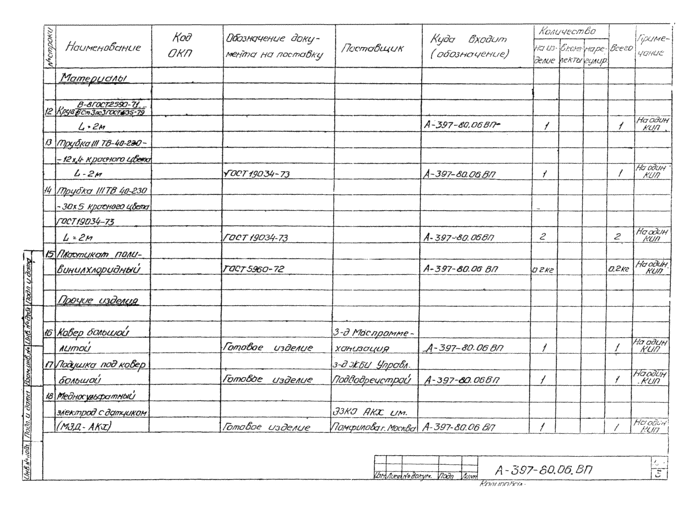 № строки Наименование Код ОКП Обозначение документа на поставку Поставщик Куда входит (обозначение) Количество на изделие в комплекты на регулир. Всего Примечание
Материалы
В-8 ГОСТ 2590-71
12 Круг
L = 2м А-397-80.06 ВП 1 1 На один КИП
13 Трубка III ТВ-40-230-
- 12х4 красного цвета
L - 2м ГОСТ 19034-73 А-397-80.06 ВП 1 1 На один КИП
14 Трубка III ТВ 40-230
- 30х5 красного цвета
ГОСТ 19034-73
L = 2м ГОСТ 19034-73 А-397-80.06 ВП 2 2 На один КИП
15 Пластикат поли-
винилхлоридный ГОСТ 5960-72 А-397-80.06 ВП 0.2кг 0.2кг На один КИП
Прочие изделия
16 Ковер большой З-д Маспромме-
литой Готовое изделие ханизация А-397-80.06 ВП 1 1 На один КИП
17 Подушка под ковер З-д ЖБИ Управл.
большой Готовое изделие Подводречстрой А-397-80.06 ВП 1 1 На один КИП
18 Медносульфатный
электрод с датчиком ЭЗКО АКХ им.
(МЭД-АКХ) Готовое изделие Памфилова г. Москва А-397-80.06 ВП 1 1 На один КИП
Изм. Лист № докум. Подп. Дата
А-397-80.06.ВП
Копировал
Инв. № подл. Подп. и дата Взам. инв. № Инв. № дубл. Подп. и дата